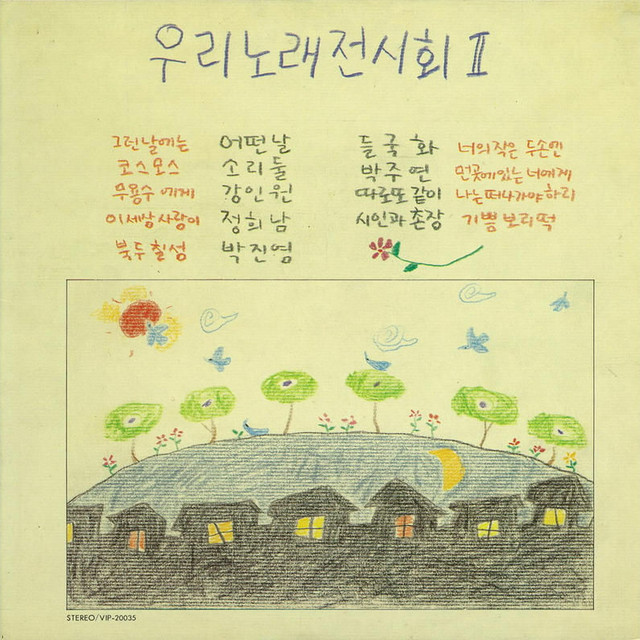 우리노래전시회 II
그런날에는 어떤날 들국화 너의작은 두손엔
코스모스 소리둘 박주연 먼곳에있는 너에게
무용수에게 강인원 따로또같이 나는 떠나가야하리
이세상사랑이 정희남 시인과 촌장 기쁨 보리떡
북두칠성 박진영
STEREO/VIP-20035